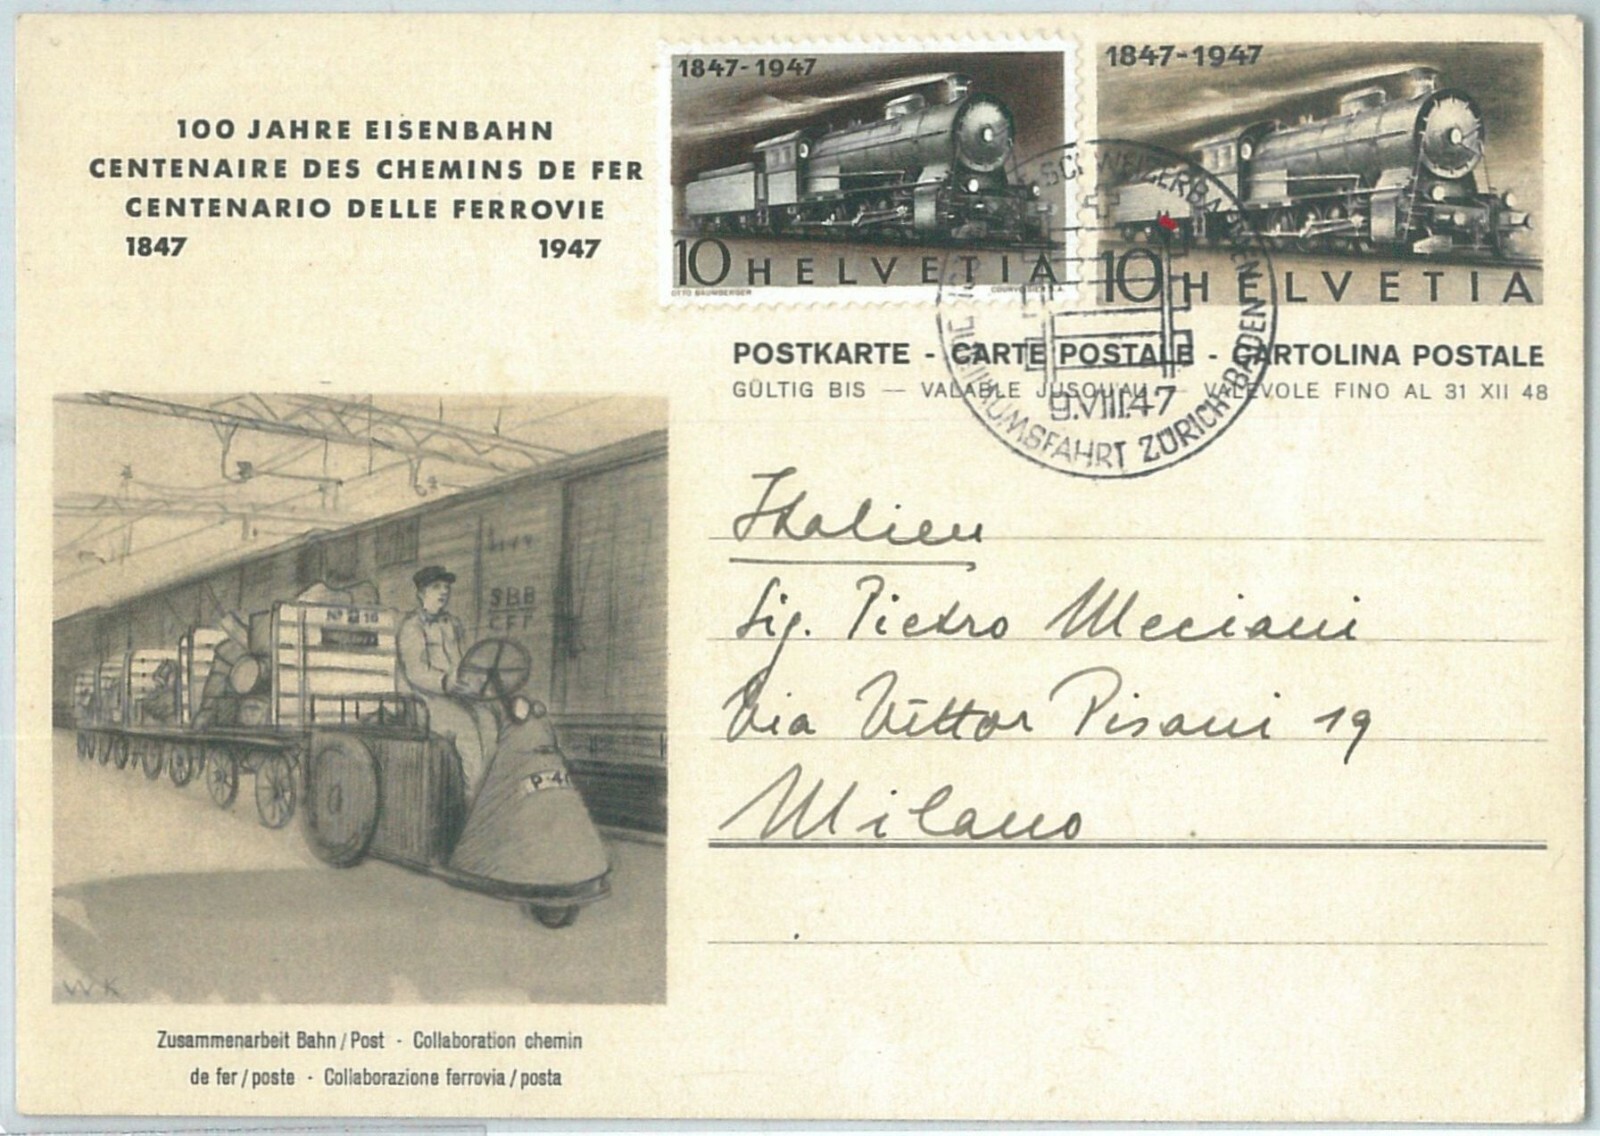 100 JAHRE EISENBAHN
CENTENAIRE DES CHEMINS DE FER
CENTENARIO DELLE FERROVIE
1847 1947
1847-1947
10 HELVETIA
OTTO BAUMBERGER
1847-1947
10 HELVETIA
SCHWEIZERBAHNEN
JUBILÄUMSFAHRT ZÜRICH-BADEN
9.VIII.47
POSTKARTE - CARTE POSTALE - CARTOLINA POSTALE
GÜLTIG BIS — VALABLE JUSQU'AU — VALEVOLE FINO AL 31 XII 48
Italien
Sig. Pietro Meciani
Via Vittor Pisani 19
Milano
SBB
CFF
P·4
WK
Zusammenarbeit Bahn / Post - Collaboration chemin
de fer / poste - Collaborazione ferrovia / posta